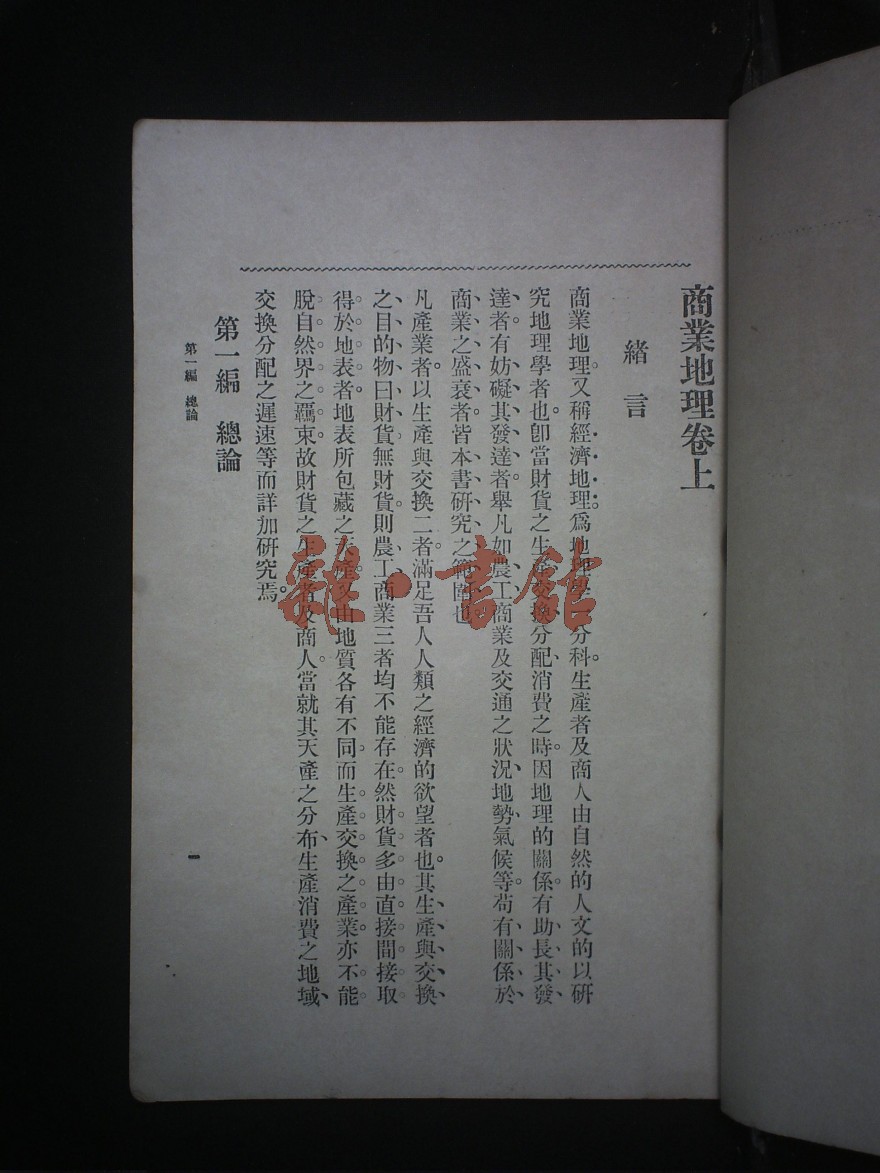 商業地理卷上
緒言
商業地理。又稱經濟地理。爲地理學一分科。生產者及商人由自然的人文的以研
究地理學者也。卽當財貨之生產、交換、分配、消費之時。因地理的關係。有助長其發
達者。有妨礙其發達者。舉凡如農工商業及交通之狀況、地勢、氣候等。苟有關係於
商業之盛衰者。皆本書研究之範圍也
凡產業者。以生產與交換二者。滿足吾人人類之經濟的欲望者也。其生產與交換
之目的物曰財貨。無財貨。則農、工、商業三者均不能存在。然財貨多由直接間接取
得於地表者。地表所包藏之天產。又由地質各有不同。而生產交換之產業。亦不能
脫自然界之羈束。故財貨之生產者及商人。當就其天產之分布、生產消費之地域、
交換分配之遲速等而詳加研究焉。
第一編 總論
第一編 總論
一
雜·書館